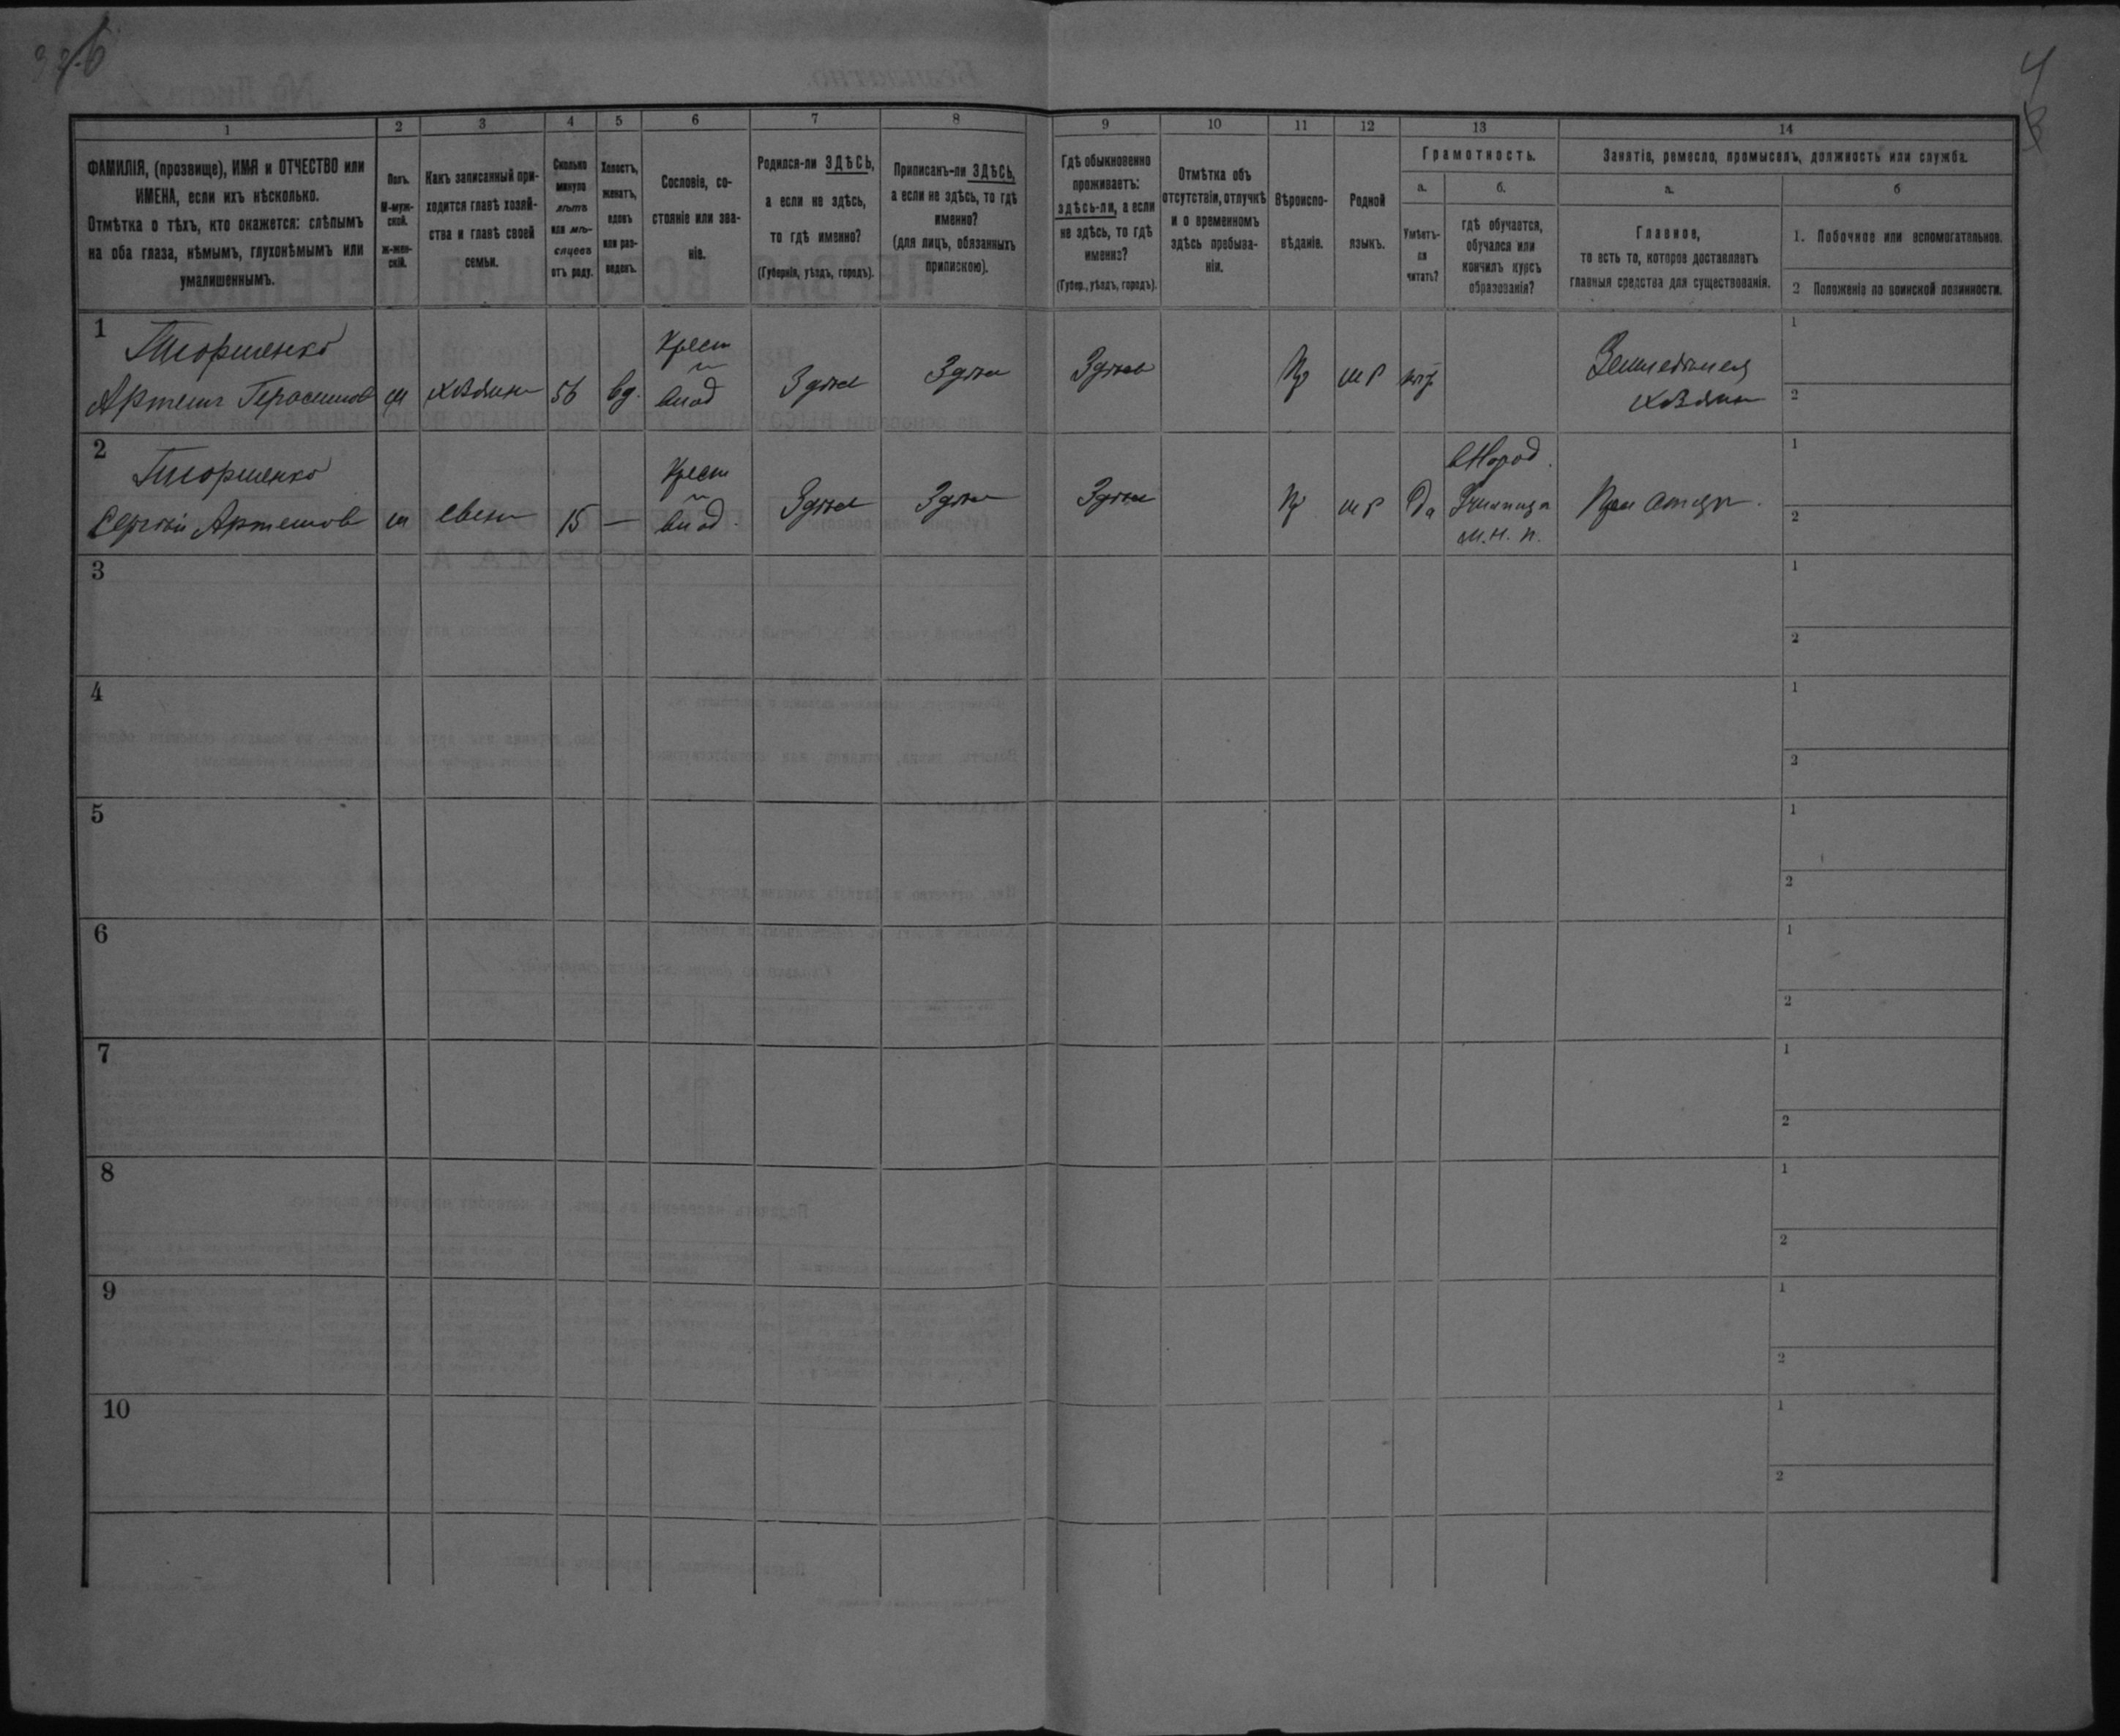 4
1 2 3 4 5 6 7 8 9 10 11 12 13 14
ФАМИЛІЯ, (прозвище), ИМЯ и ОТЧЕСТВО или
ИМЕНА, если ихъ нѣсколько.
Отмѣтка о тѣхъ, кто окажется: слѣпымъ
на оба глаза, нѣмымъ, глухонѣмымъ или
умалишеннымъ.
Полъ.
М-муж-
ской.
ж-жен-
скій.
Какъ записанный при-
ходится главѣ хозяй-
ства и главѣ своей
семьи.
Сколько
минуло
лѣтъ
или мѣ-
сяцевъ
отъ роду.
Холостъ,
женатъ,
вдовъ
или раз-
веденъ.
Сословіе, со-
стояніе или зва-
ніе.
Родился-ли ЗДѢСЬ,
а если не здѣсь,
то гдѣ именно?
(Губернія, уѣздъ, городъ).
Приписанъ-ли ЗДѢСЬ,
а если не здѣсь, то гдѣ
именно?
(для лицъ, обязанныхъ
припискою).
Гдѣ обыкновенно
проживаетъ:
здѣсь-ли, а если
не здѣсь, то гдѣ
именно?
(Губер., уѣздъ, городъ).
Отмѣтка объ
отсутствіи, отлучкѣ
и о временномъ
здѣсь пребыва-
ніи.
Вѣроиспо-
вѣданіе.
Родной
языкъ.
Грамотность.
а.
Умѣетъ-
ли
читать?
б.
гдѣ обучается,
обучался или
кончилъ курсъ
образованія?
Занятіе, ремесло, промыселъ, должность или служба.
а.
Главное,
то есть то, которое доставляетъ
главныя средства для существованія.
б
1. Побочное или вспомогательное.
2 Положеніе по воинской повинности.
1
Артемъ Герасимов м хозяин 56 вд. Крест Здѣсь Здѣсь Здѣсь Пр м р нѣт Земледѣлец
хозяин
1
2
2
Сергѣй Артемов м сын 15 — Крест Здѣсь Здѣсь Здѣсь Пр м р Да в Народ.
Училище
м. н. п.
При отцѣ.
1
2
3
1
2
4
1
2
5
1
2
6
1
2
7
1
2
8
1
2
9
1
2
10
1
2